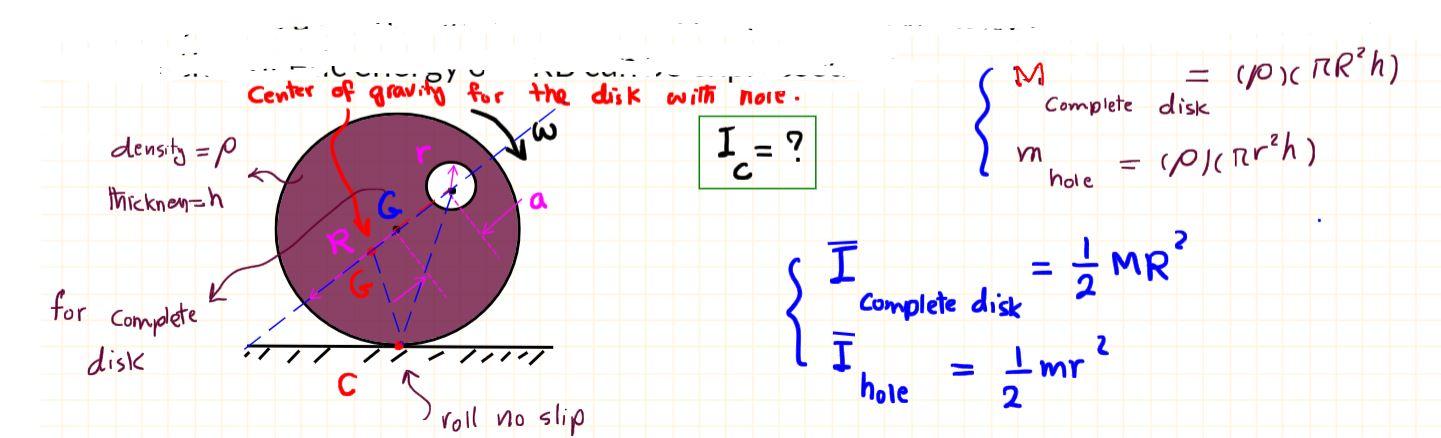 Center of gravity for the disk with hole.
density = ρ
thickness=h
for complete
disk
ω
r
a
G
R
G
C
roll no slip
I_C = ?
M complete disk = (ρ)(πR²h)
m hole = (ρ)(πr²h)
Ī complete disk = 1/2 MR²
Ī hole = 1/2 mr²